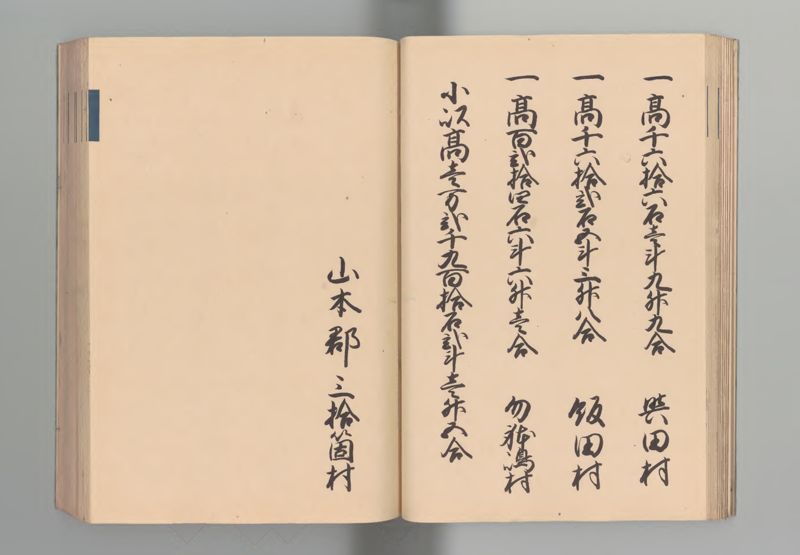 一高千六拾六石壱斗九升九合 與田村
一高千六拾弐石五斗三升八合 飯田村
一高百弐拾四石六斗六升壱合 勿猪渕村
小以高壱万弐千九百拾石弐斗壱升五合
山本郡三拾箇村